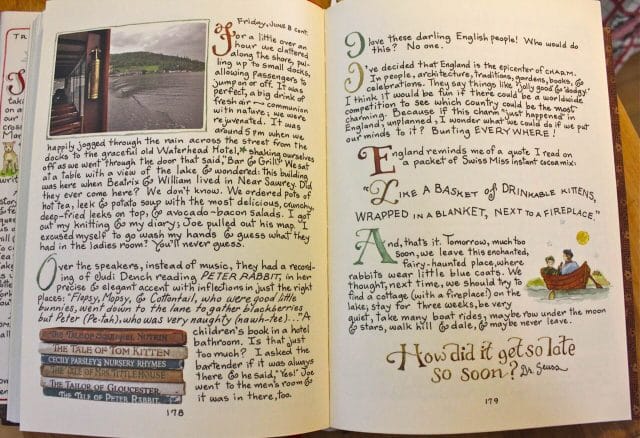 Friday, June 8 cont.
For a little over an
hour we clattered
along the shore, pul-
ling up to small docks,
allowing passengers to
jump on or off. It was
perfect, a big drink of
fresh air → communion
with nature; we were
rejuvenated. It was
around 5 pm when we
happily jogged through the rain across the street from the
docks to the graceful old Waterhead Hotel,* shaking ourselves
off as we went through the door that said, "Bar & Grill." We sat
at a table with a view of the lake & wondered: this building
was here when Beatrix & William lived in Near Sawrey. Did
they ever come here? We don't know. We ordered pots of
hot tea, leek & potato soup with the most delicious, crunchy,
deep-fried leeks on top, & avocado-bacon salads. I got
out my knitting & my diary; Joe pulled out his map. I
excused myself to go wash my hands & guess what they
had in the ladies room? You'll never guess.
Over the speakers, instead of music, they had a record-
ing of Judi Dench reading, PETER RABBIT, in her
precise & elegant accent with inflections in just the right
places: "Flopsy, Mopsy, & Cottontail, who were good little
bunnies, went down to the lane to gather blackberries
but Peter (Pe-tah), who was very naughty (nawh-tee)..." A
children's book in a hotel
bathroom. Is that just
too much? I asked the
bartender if it was always
there & he said, "Yes!" Joe
went to the men's room &
it was in there, too.
THE TALE OF SQUIRREL NUTKIN
THE TALE OF TOM KITTEN
CECILY PARSLEY'S NURSERY RHYMES
THE TAILOR OF GLOUCESTER
THE TALE OF PETER RABBIT
178
I love these darling English people! Who would do
this? No one.
I've decided that England is the epicenter of CHARM.
In people, architecture, traditions, gardens, books, &
celebrations. They say things like "jolly good" & "dodgy."
I think it would be fun if there could be a worldwide
competition to see which country could be the most
charming. Because if this charm "just happened" in
England, unplanned, I wonder what we could do if we put
our minds to it? Bunting EVERYWHERE!
England reminds me of a quote I read on
a packet of Swiss Miss instant cocoa mix:
"LIKE A BASKET OF DRINKABLE KITTENS,
WRAPPED IN A BLANKET, NEXT TO A FIREPLACE."
And, that's it. Tomorrow, much too
soon, we leave this enchanted,
fairy-haunted place, where
rabbits wear little blue coats. We
thought, next time, we should try to
find a cottage (with a fireplace) on the
lake, stay for three weeks, be very
quiet, Take many boat rides, maybe row under the moon
& stars, walk hill & dale, & maybe never leave.
How did it get so late
so soon? Dr. Seuss
179